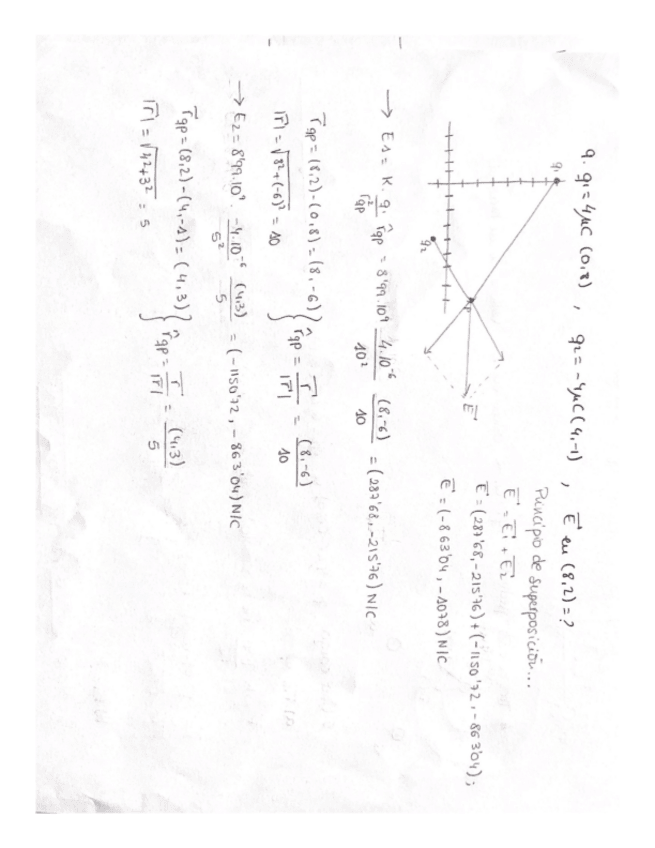 9. q₁ = 4μC (0,8) , q₂ = -4μC (4,-1) , E⃗ en (8,2) = ?
q₁
q₂
P
E⃗
Principio de superposición...
E⃗ = E⃗₁ + E⃗₂
E⃗ = (287'68, -215'76) + (-1150'72, -863'04);
E⃗ = (-863'04, -1078) N/C
→ E₁ = K. q₁/r²qp . r̂qp = 8'99.10⁹ 4.10⁻⁶/10² (8,-6)/10 = (287'68, -215'76) N/C
r⃗qp = (8,2) - (0,8) = (8,-6)
|r⃗| = √8²+(-6)² = 10
} r̂qp = r⃗/|r⃗| = (8,-6)/10
→ E₂ = 8'99.10⁹. -4.10⁻⁶/5² (4,3)/5 = (-1150'72, -863'04) N/C
r⃗qp = (8,2) - (4,-1) = (4,3)
|r⃗| = √4²+3² = 5
} r̂qp = r⃗/|r⃗| = (4,3)/5